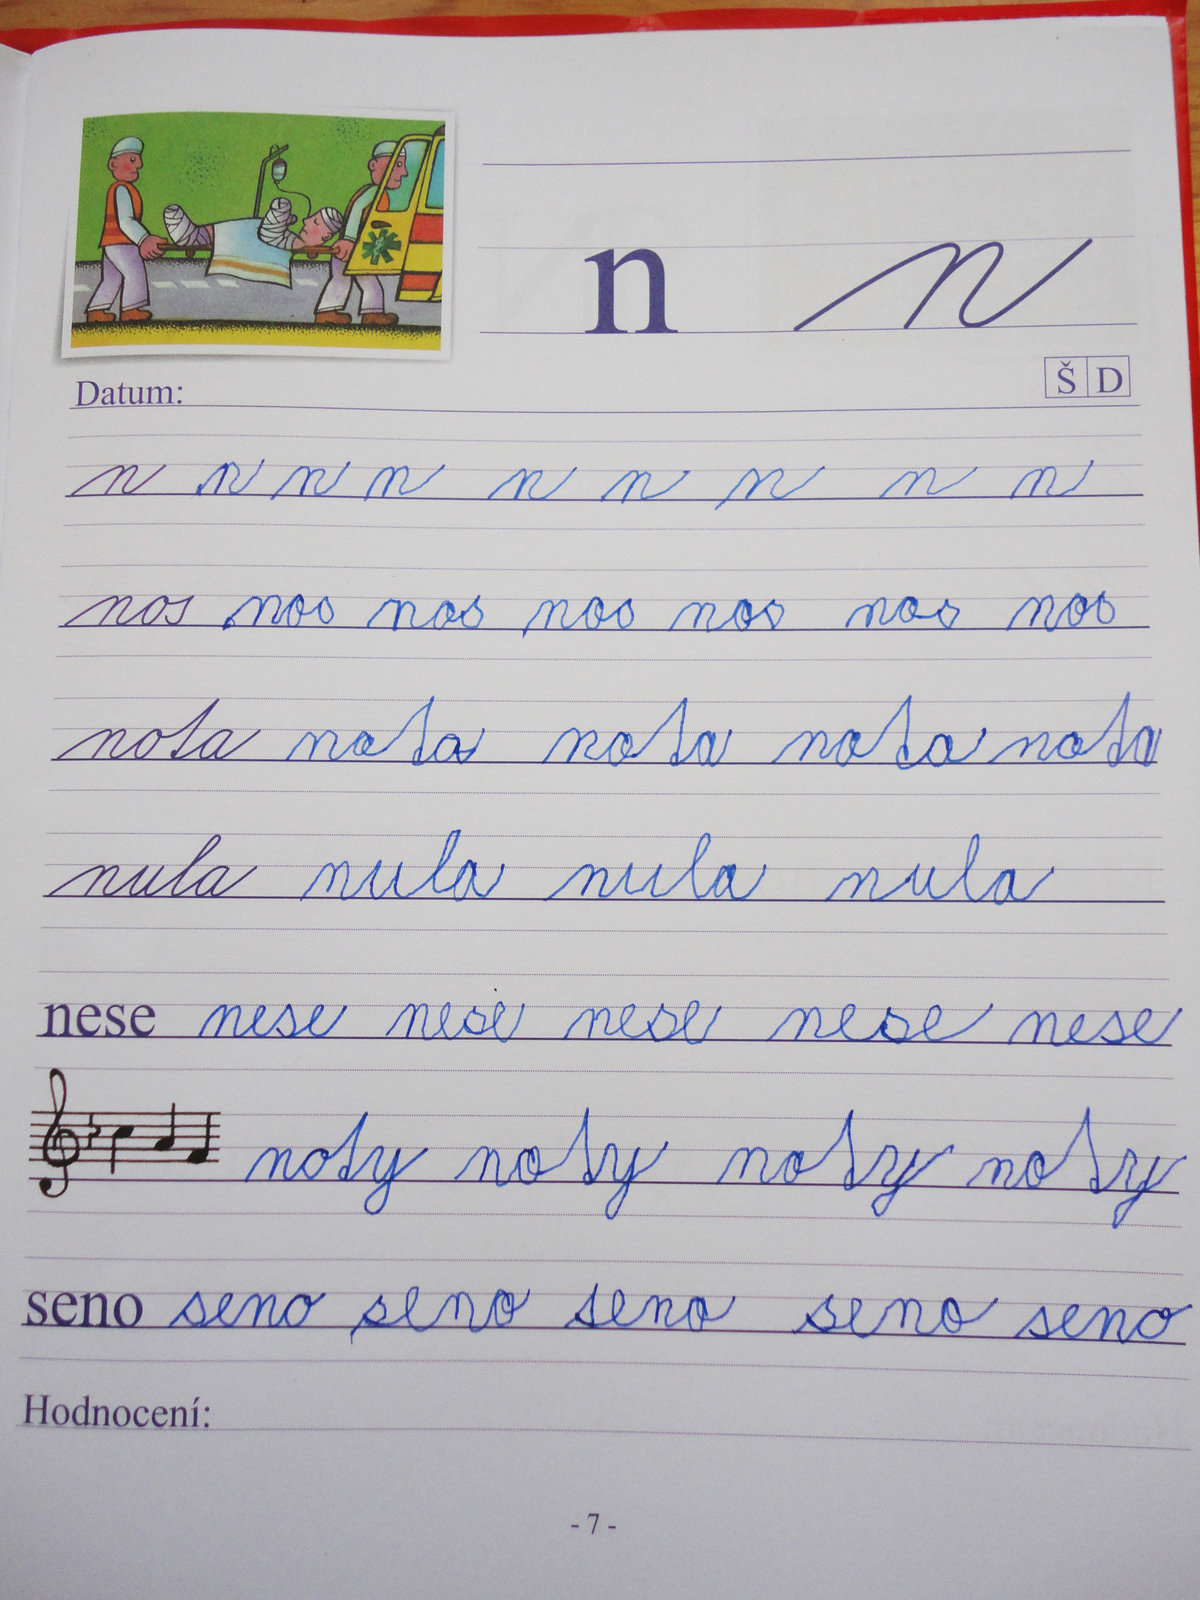 n n
Datum: Š D
n n n n n n n n n
nos nos nos nos nos nos nos
nota nota nota nota nota
nula nula nula nula
nese nese nese nese nese nese
noty noty noty noty
seno seno seno seno seno seno
Hodnocení:
- 7 -